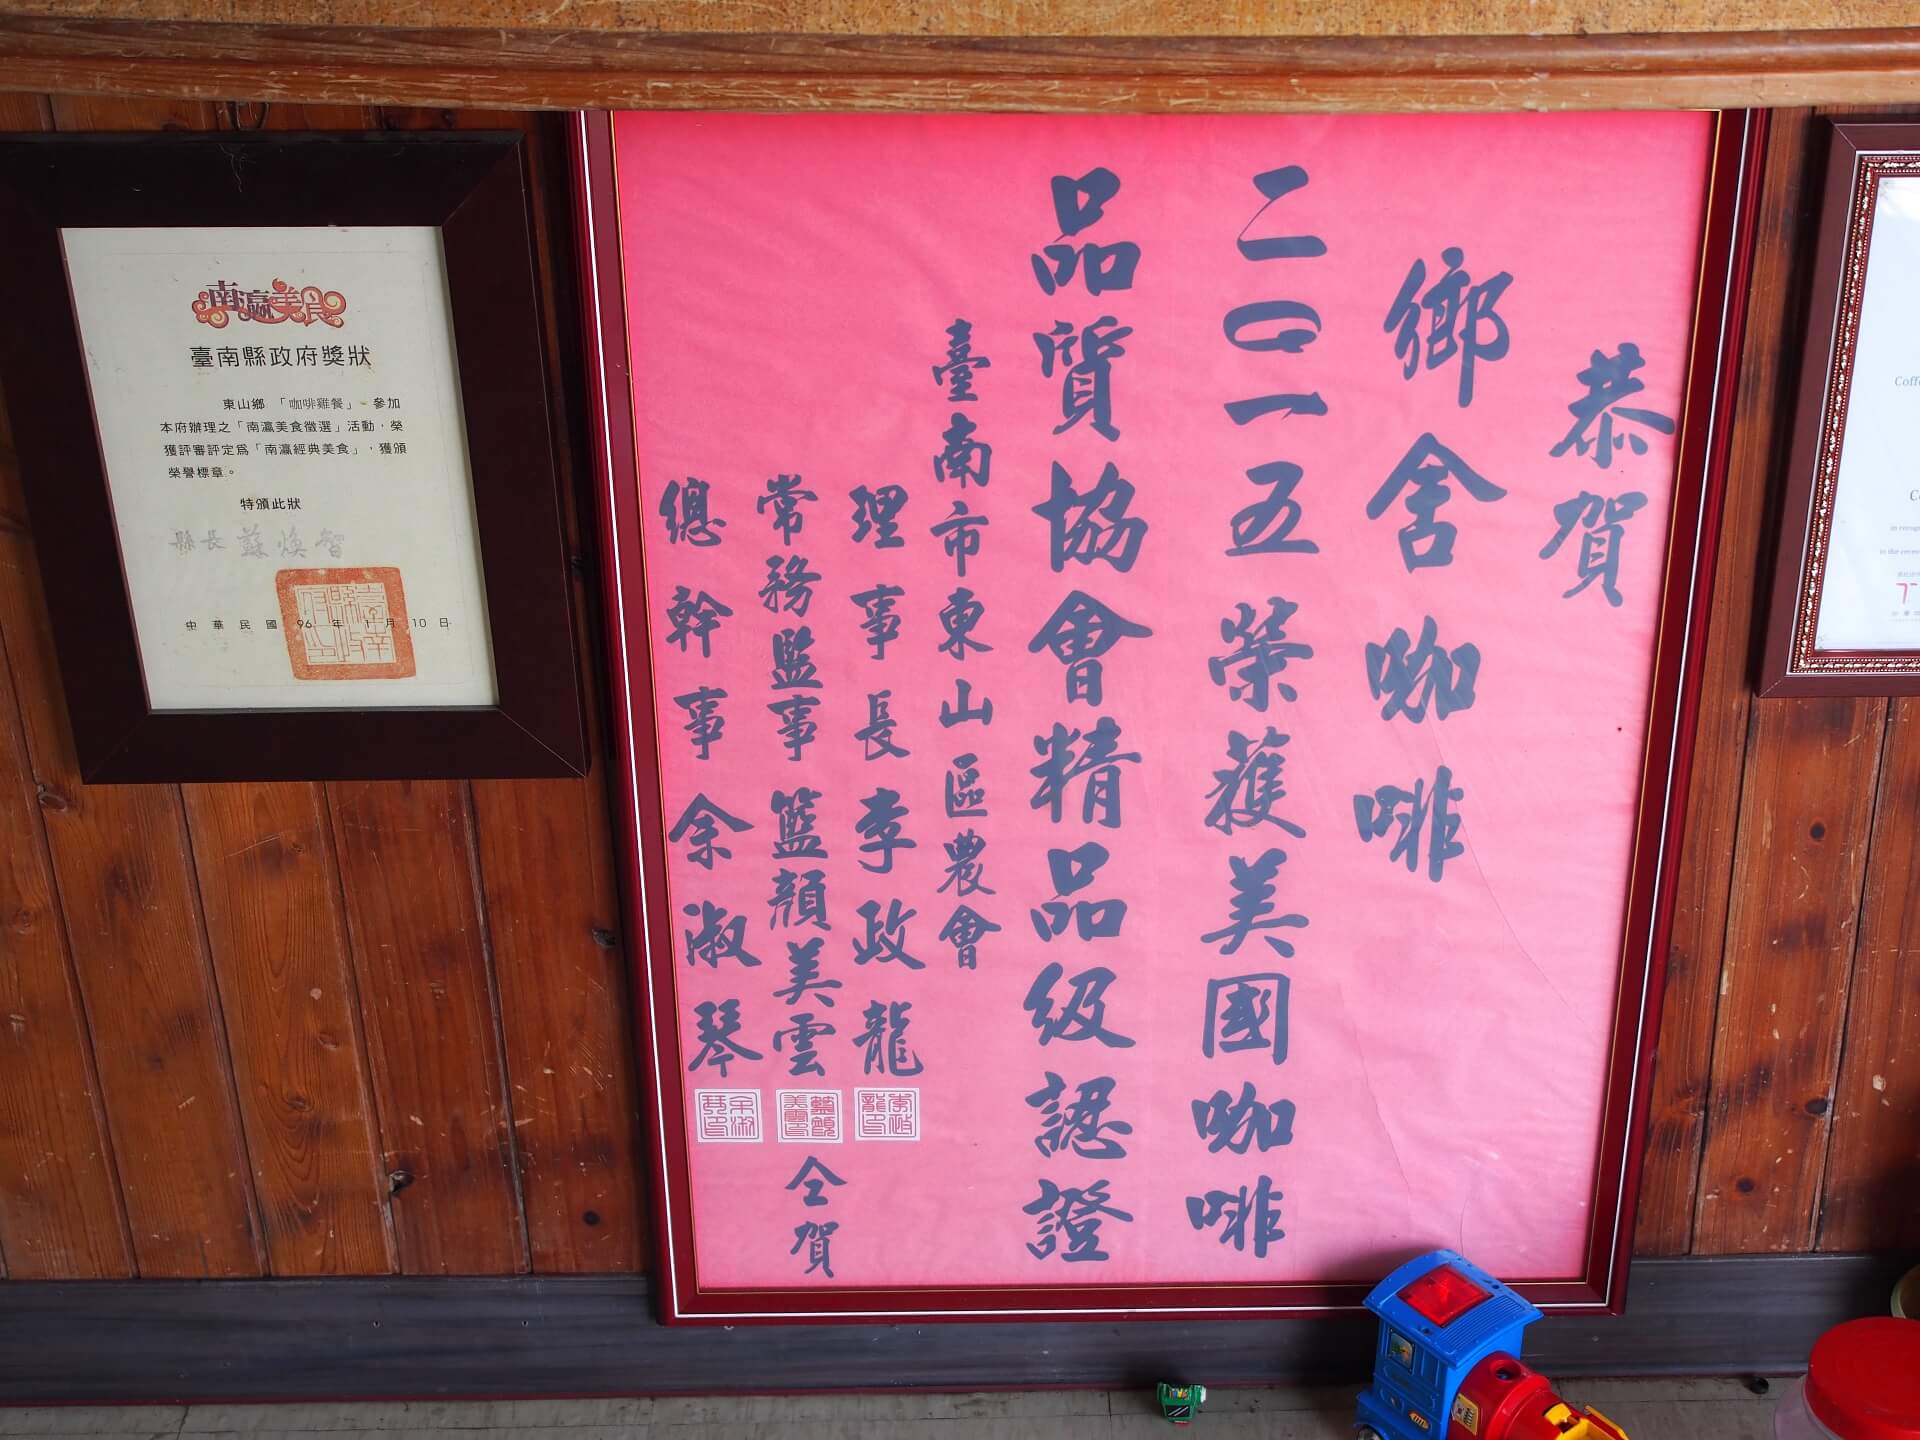 南瀛美食
臺南縣政府獎狀
東山鄉 「咖啡雞餐」 參加
本府辦理之「南瀛美食徵選」活動，榮
獲評審評定為「南瀛經典美食」，獲頒
榮譽標章。
特頒此狀
縣長 蘇煥智
中華民國 96 年 1 月 10 日
恭賀
鄉舍咖啡
二〇一五榮獲美國咖啡
品質協會精品級認證
臺南市東山區農會
理事長李政龍
常務監事籃顏美雲
總幹事余淑琴
仝賀